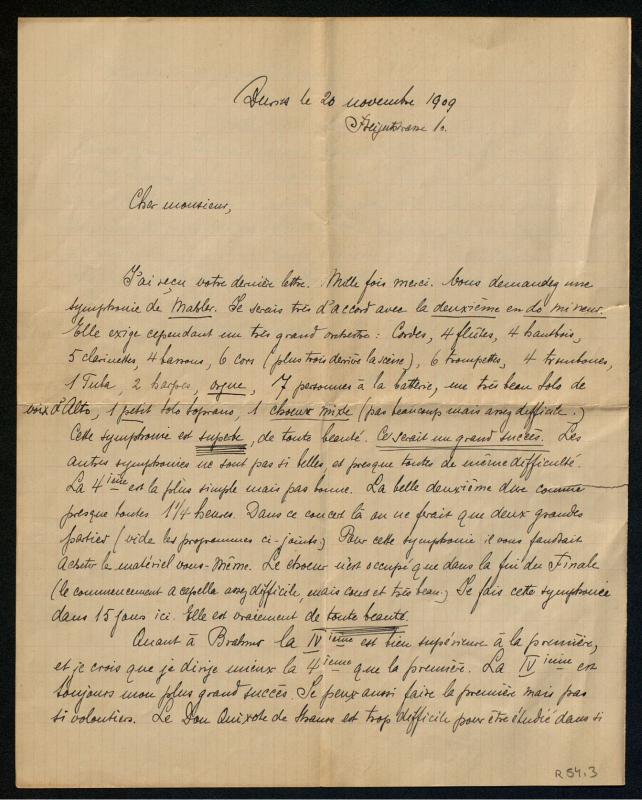 le 20 novembre 1909
Cher monsieur,
J'ai reçu votre dernière lettre. Mille fois merci. Vous demandez une
symphonie de Mahler. Je serais très d'accord avec la deuxième en do mineur.
Elle exige cependant un très grand orchestre: Cordes, 4 flûtes, 4 hautbois,
5 clarinettes, 4 bassons, 6 cors (plus trois derrière la scène), 6 trompettes, 4 trombones,
1 Tuba, 2 harpes, orgue, 7 personnes à la batterie, une très beau solo de
voix d'Alto, 1 petit solo soprano, 1 choeur mixte (pas beaucoup mais assez difficile.)
Cette symphonie est superbe, de toute beauté. Ce serait un grand succès. Les
autres symphonies ne sont pas si belles, et presque toutes de même difficulté.
La 4ième est la plus simple mais pas bonne. La belle deuxième dure comme
presque toutes 1 1/4 heures. Dans ce concert là on ne ferait que deux grandes
parties (vide les programmes ci-joints.) Pour cette symphonie il vous faudrait
acheter le matériel vous-même. Le choeur n'est occupé que dans la fin du Finale
(le commencement a capella assez difficile, mais court et très beau.) Je fais cette symphonie
dans 15 jours ici. Elle est vraiement de toute beauté.
Quant à Brahms la IVième est bien supérieure à la première,
et je crois que je dirige mieux la 4ième que la première. La IVième est
toujours mon plus grand succès. Je peux aussi faire la première mais pas
si volontiers. Le Don Quixote de Strauss est trop difficile pour être étudié dans si
R 54.3